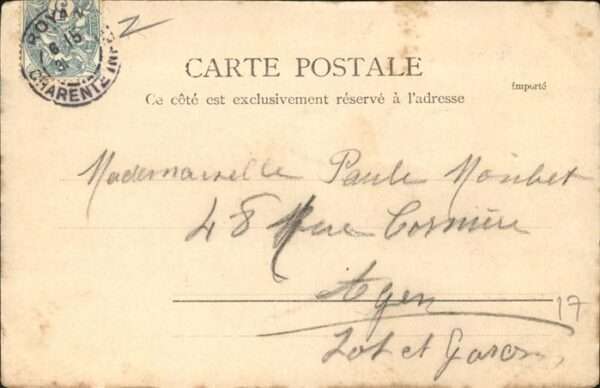 ROYAN
6 15
CHARENTE INF
CARTE POSTALE
Ce côté est exclusivement réservé à l'adresse
Importé
Mademoiselle Paule
48 Rue Cornière
Agen
17
Lot et Garonne